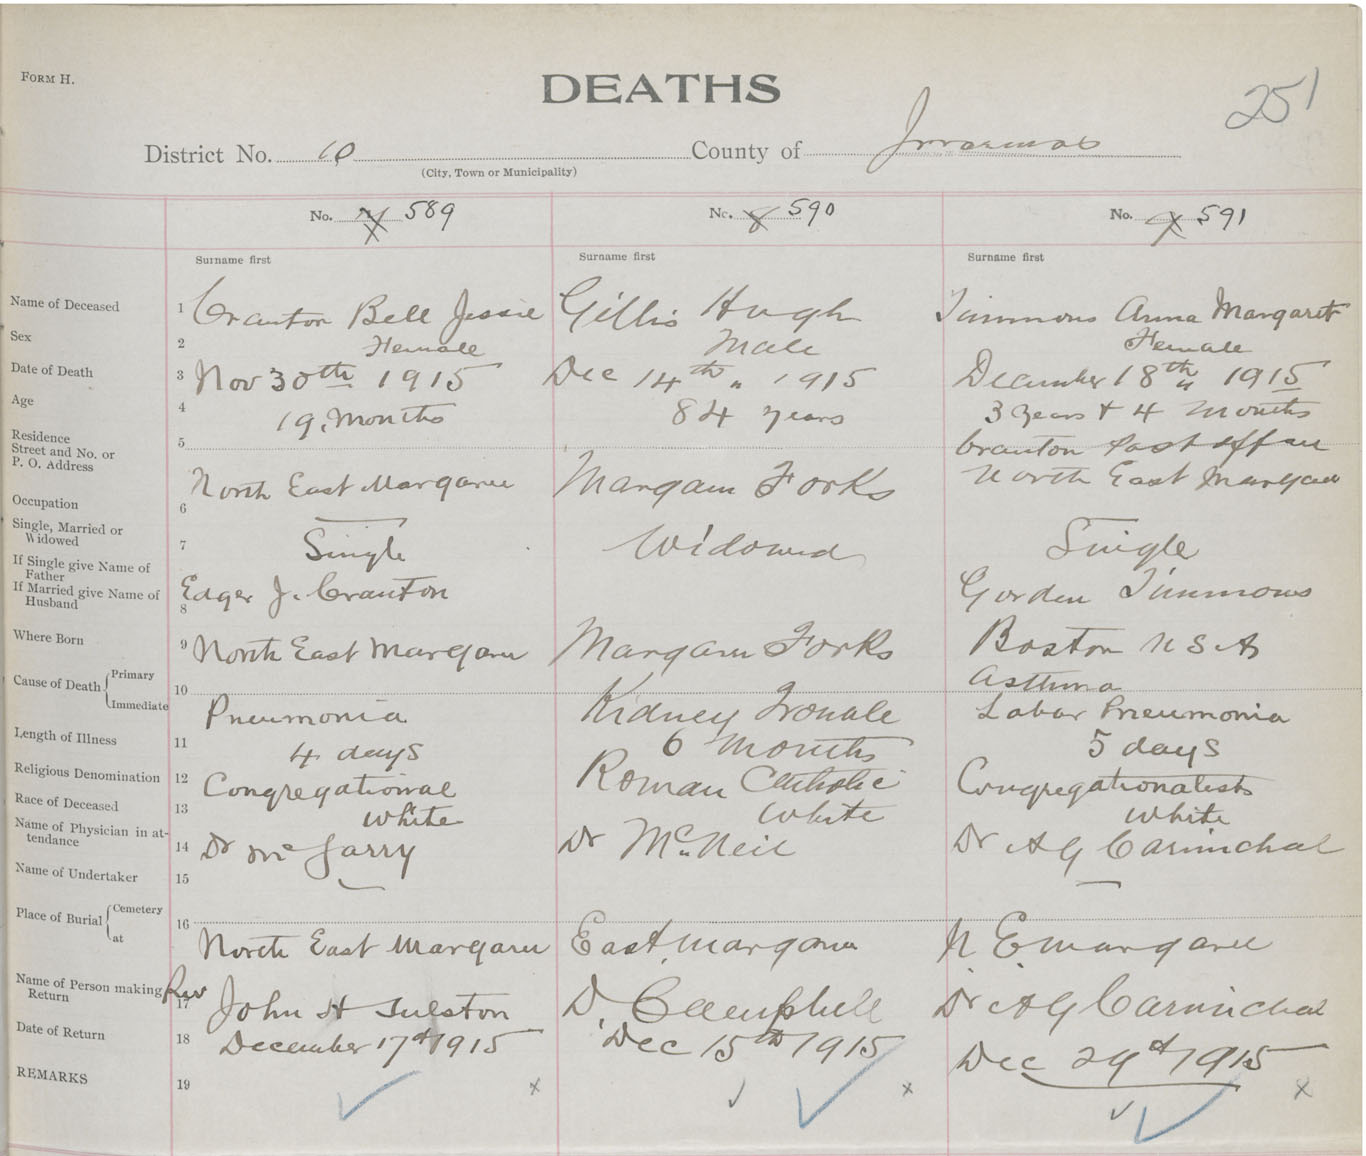 FORM H.
DEATHS
251
District No. 10 County of Inverness
(City, Town or Municipality)
No. 7 589
No. 8 590
No. 9 591
Surname first
Surname first
Surname first
Name of Deceased
1
Cranton Bell Jessie
Gillis Hugh
Timmons Anna Margaret
Sex
2
Female
Male
Female
Date of Death
3
Nov 30th 1915
Dec 14th " 1915
December 18th " 1915
Age
4
19 Months
84 years
3 years + 4 months
Residence
Street and No. or
P. O. Address
5
North East Margaree
Margaree Forks
Cranton Post office
North East Margaree
Occupation
6
Single, Married or
Widowed
7
Single
Widowed
Single
If Single give Name of
Father
If Married give Name of
Husband
8
Edger J. Cranton
Gorden Timmons
Where Born
9
North East Margaree
Margaree Forks
Boston U S A
Cause of Death
Primary
Immediate
10
Asthma
Pneumonia
Kidney Trouble
Labar Pneumonia
Length of Illness
11
4 days
6 months
5 days
Religious Denomination
12
Congregational
Roman Catholic
Congregationalists
Race of Deceased
13
White
White
White
Name of Physician in at-
tendance
14
Dr McGarry
Dr McNeil
Dr A G Carmichal
Name of Undertaker
15
Place of Burial
Cemetery
at
16
North East Margaree
East Margaree
N. E. Margaree
Name of Person making
Return
17
Rev John H
D. Campbell
Dr A G Carmichal
Date of Return
18
December 17th 1915
Dec 15th 1915
Dec 29th 1915
REMARKS
19